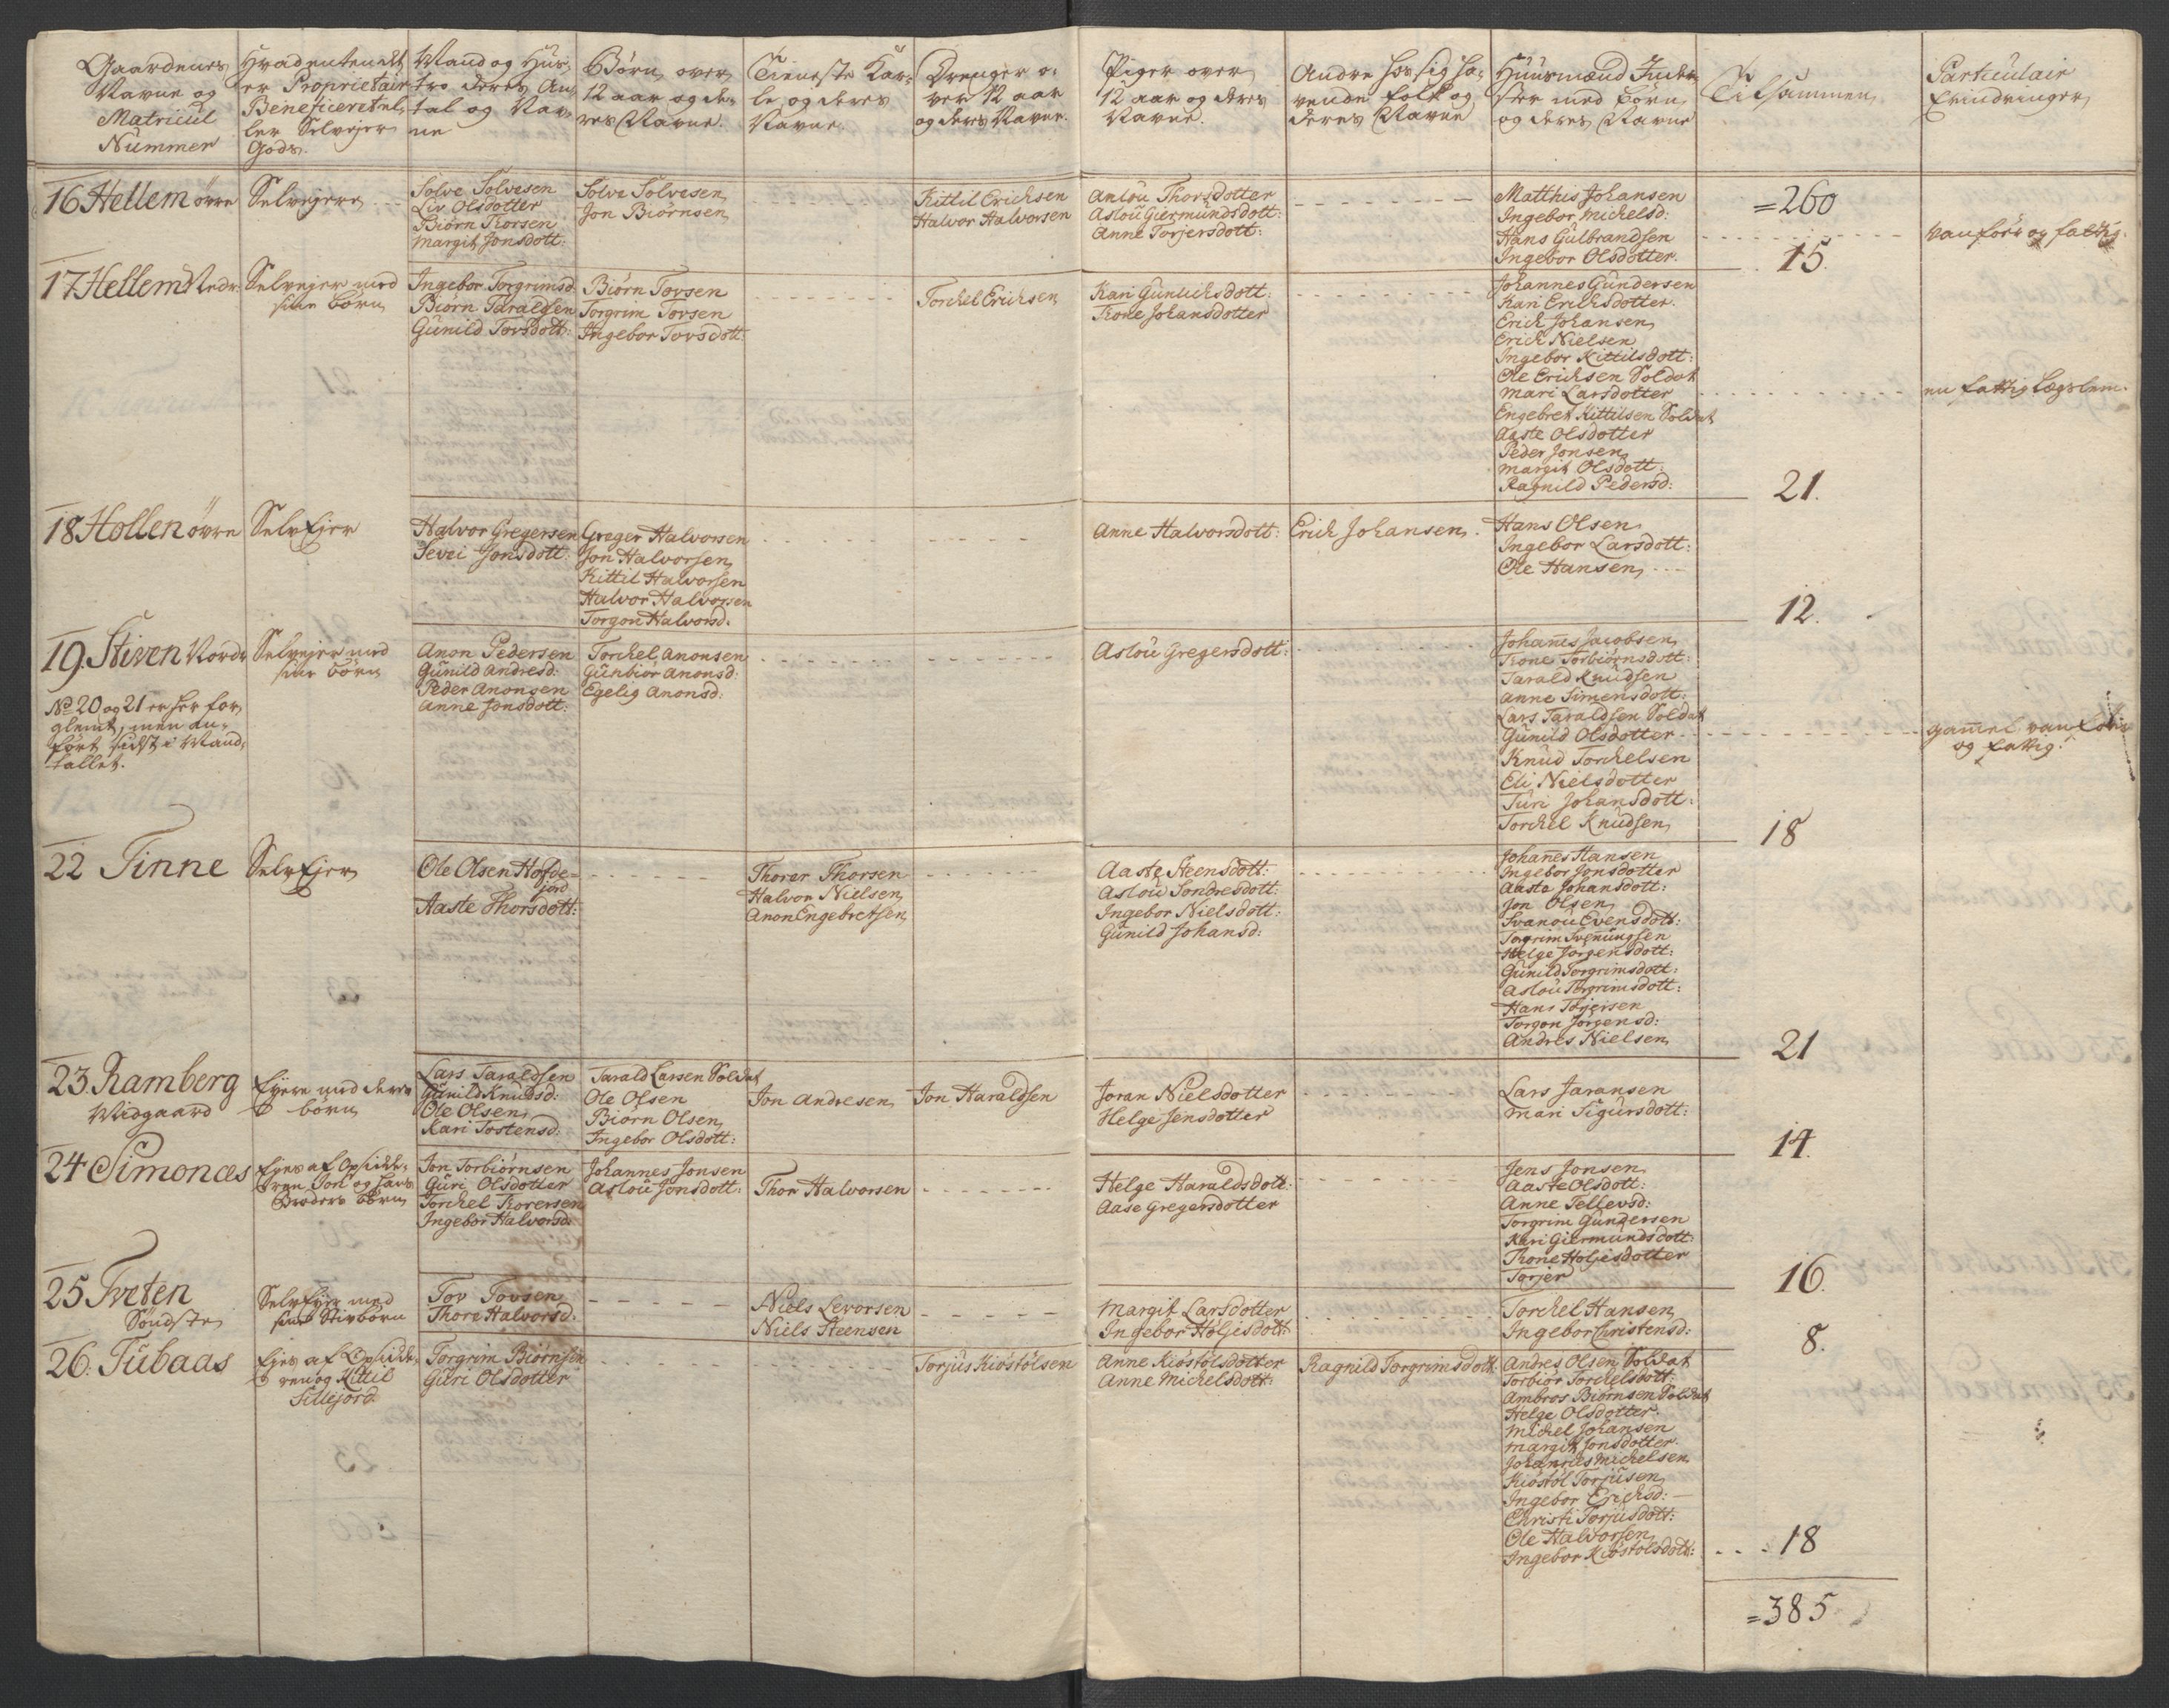 Gaardenes Navne og Matricul Nummer
Hvad enten det er Proprietair Beneficeret eller Selvejer Gods.
Mand og Hustro deres Antal og Navne
Børn over 12 aar og deres Navne.
Tieneste Karle og deres Navne.
Drenger over 12 aar og deres Navne.
Piger over 12 aar og deres Navne.
Andre hos sig havende folk og deres Navne
Huusmænd Inderster med børn og deres Navne
Tilsammen
Particulair Erindringer
=260
16 Hellem øvre
Selvejere
Solve Solvesen
Liv Olsdotter
Biørn Thorsen
Margit Jonsdott:
Solve Solvesen
Jon Biørnsen
Kittil Erichsen
Halvor Halvorsen
Anlou Thorsdotter
Aslou Giermundsdott:
Anne Torjersdott:
Matthis Johansen
Ingebor Michelsd:
Hans Gulbrandsen
Ingebor Olsdotter.
15.
vanför og fattig.
17 Hellem Nedr:
Selvejer med
sine børn
Ingebor Torgrimsd:
Biørn Taraldsen
Gunild Tovsdott:
Biørn Tovsen
Torgrim Tovsen
Ingebor Tovsdott:
Torchel Erichsen
Kari Gunlichsdott:
Trone Johansdotter
Johannes Gundersen
Kari Erichsdotter.
Erich Johansen
Erich Nielsen
Ingebor Kittilsdott:
Ole Erichsen Soldat
Mari Larsdotter
Engebret Kittilsen Soldat
Aaste Olsdotter
Peder Jonsen
Margit Olsdott
Ragnild Pedersd:
21.
en fattig Lægslem.
18 Hollen øvre
SelvEjer
Halvor Gregersen
Sevei Jonsdott:
Greger Halvorsen
Jon Halvorsen
Kittil Halvorsen
Halvor Halvorsen
Torgon Halvorsd.
Anne Halvorsdott:
Erich Johansen.
Hans Olsen
Ingebor Larsdott:
Ole Hansen
12.
19. Stiven Nordr
Selvejer med
sine børn
No 20 og 21 er her for
glemt, men an-
ført sidst i Mand-
tallet.
Anon Pedersen
Gunild Andresd:
Peder Anonsen
Anne Jonsdott:
Torchel Anonsen
Gunbior Anonsd:
Egelig Anonsd:
Aslou Gregersdott:
Johannes Jacobsen
Trone Torbiørnsdott:
Tarald Knudsen
Anne Simensdott:
Lars Taraldsen Soldat
Gunild Olsdotter
Knud Torchelsen
Eli Nielsdotter
Turi Johansdott:
Torchel Knudsen
18
gammel vanför
og fattig.
22 Tinne
SelvEjer
Ole Olsen Hofde-
jord
Aaste Thorsdott:
Thorer Thorsen
Halvor Nielsen
Anon Engebretsen
Aaste Steensdott:
Aslou Sondresdott:
Ingebor Nielsdott:
Gunild Johansd:
Johannes Hansen
Ingebor Jonsdotter
Aaste Johansdott:
Jon Olsen
Svanou Evensdott:
Torgrim Svenungsen
Helge Jorgensdott:
Gunild Torgrimsdott:
Aslou Torgrimsdott:
Hans Torjersen
Torgon Jörgensd:
Andres Nielsen
21
23. Ramberg
Midgaard
Ejere med deres
børn
Lars Taraldsen
Gunild Knudsd:
Ole Olsen
Kari Tostensd:
Tarald Larsen Soldat
Ole Olsen
Biørn Olsen
Ingebor Olsdott:
Jon Andresen
Jon Haraldsen
Joran Nielsdotter
Helge Jensdotter
Lars Jaransen
Mari Sigursdott:
14.
24 Simonæs
Ejes af Opsidde-
ren Jon og hans
Broders børn
Jon Torbiørnsen
Guri Olsdotter
Torchel Thorersen
Ingebor Halvorsd:
Johannes Jonsen
Aslou Jonsdott:
Thor Halvorsen
Helge Haraldsdott:
Aase Gregersdotter
Jens Jonsen
Aaste Olsdott:
Anne Tellevsd:
Torgrim Gundersen
Kari Giermundsdott:
Throne Holjesdotter
Torjer
16.
25 Tveten
Søndste
SelvEjer med
sine Stivbørn
Tov Tovsen
Thore Halvorsd.
Niels Levorsen
Niels Steensen
Margit Larsdotter
Ingebor Holjesdott:
Torchel Hansen
Ingebor Christensd:
8.
26. Tubaas
Ejes af Opsidde-
ren og Kittil
Sillejord
Torgrim Biørnsen
Guri Olsdotter
Torjus Kiöstölsen
Anne Kiöstölsdotter
Anne Michelsdott:
Ragnild Torgrimsdott:
Andres Olsen Soldat
Torbior Torchelsdott:
Ambros Biørnsen Soldat
Helge Olsdotter.
Michel Johansen
Margit Jonsdotter
Johannes Michelsen
Kiöstöl Torjusen
Ingebor Erichsd:
Christi Torjusdott:
Ole Halvorsen
Ingebor Kiöstölsdott:
18
=385